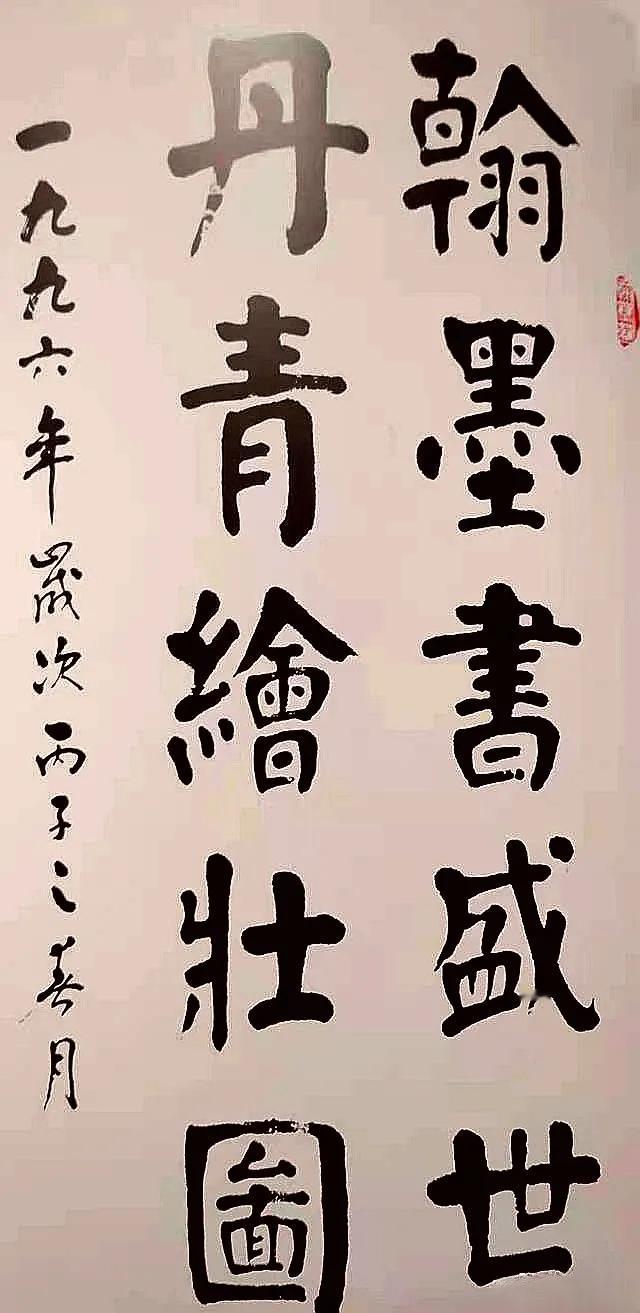 翰墨書盛世
丹青繪壯圖
一九九六年歲次丙子之春月